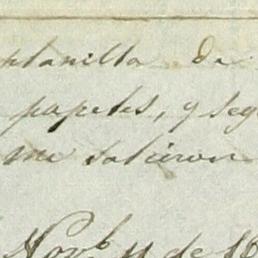 plantilla de
papeles, y seg
me salieron
Novb 11 de 18